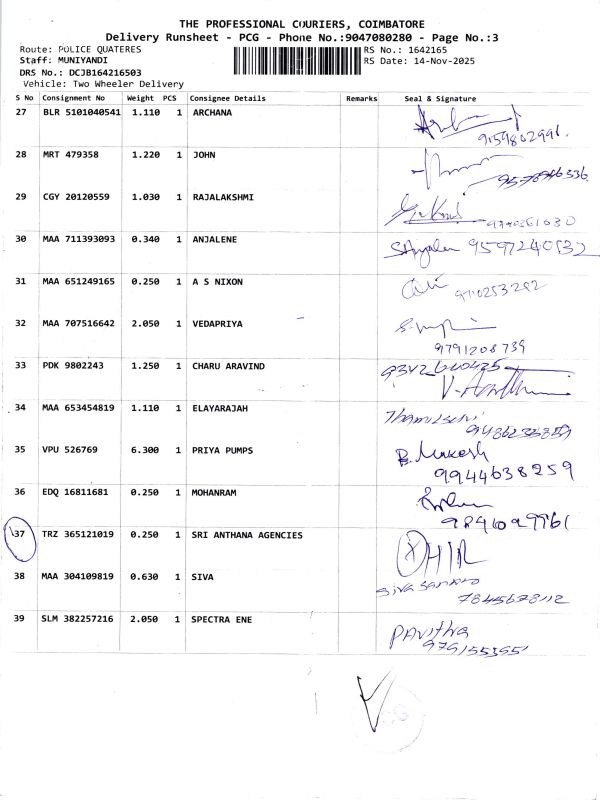 THE PROFESSIONAL COURIERS, COIMBATORE
Delivery Runsheet - PCG - Phone No.:9047080280 - Page No.:3
Route: POLICE QUATERES RS No.: 1642165
Staff: MUNIYANDI RS Date: 14-Nov-2025
DRS No.: DCJB164216503
Vehicle: Two Wheeler Delivery
S No Consignment No Weight PCS Consignee Details Remarks Seal & Signature
27 BLR 5101040541 1.110 1 ARCHANA
9159802991.
28 MRT 479358 1.220 1 JOHN
29 CGY 20120559 1.030 1 RAJALAKSHMI
30 MAA 711393093 0.340 1 ANJALENE
31 MAA 651249165 0.250 1 A S NIXON
32 MAA 707516642 2.050 1 VEDAPRIYA
9791208739
33 PDK 9802243 1.250 1 CHARU ARAVIND
34 MAA 653454819 1.110 1 ELAYARAJAH
35 VPU 526769 6.300 1 PRIYA PUMPS B. Mukesh
9944638259
36 EDQ 16811681 0.250 1 MOHANRAM
37 TRZ 365121019 0.250 1 SRI ANTHANA AGENCIES
38 MAA 304109819 0.630 1 SIVA
39 SLM 382257216 2.050 1 SPECTRA ENE Pavithra